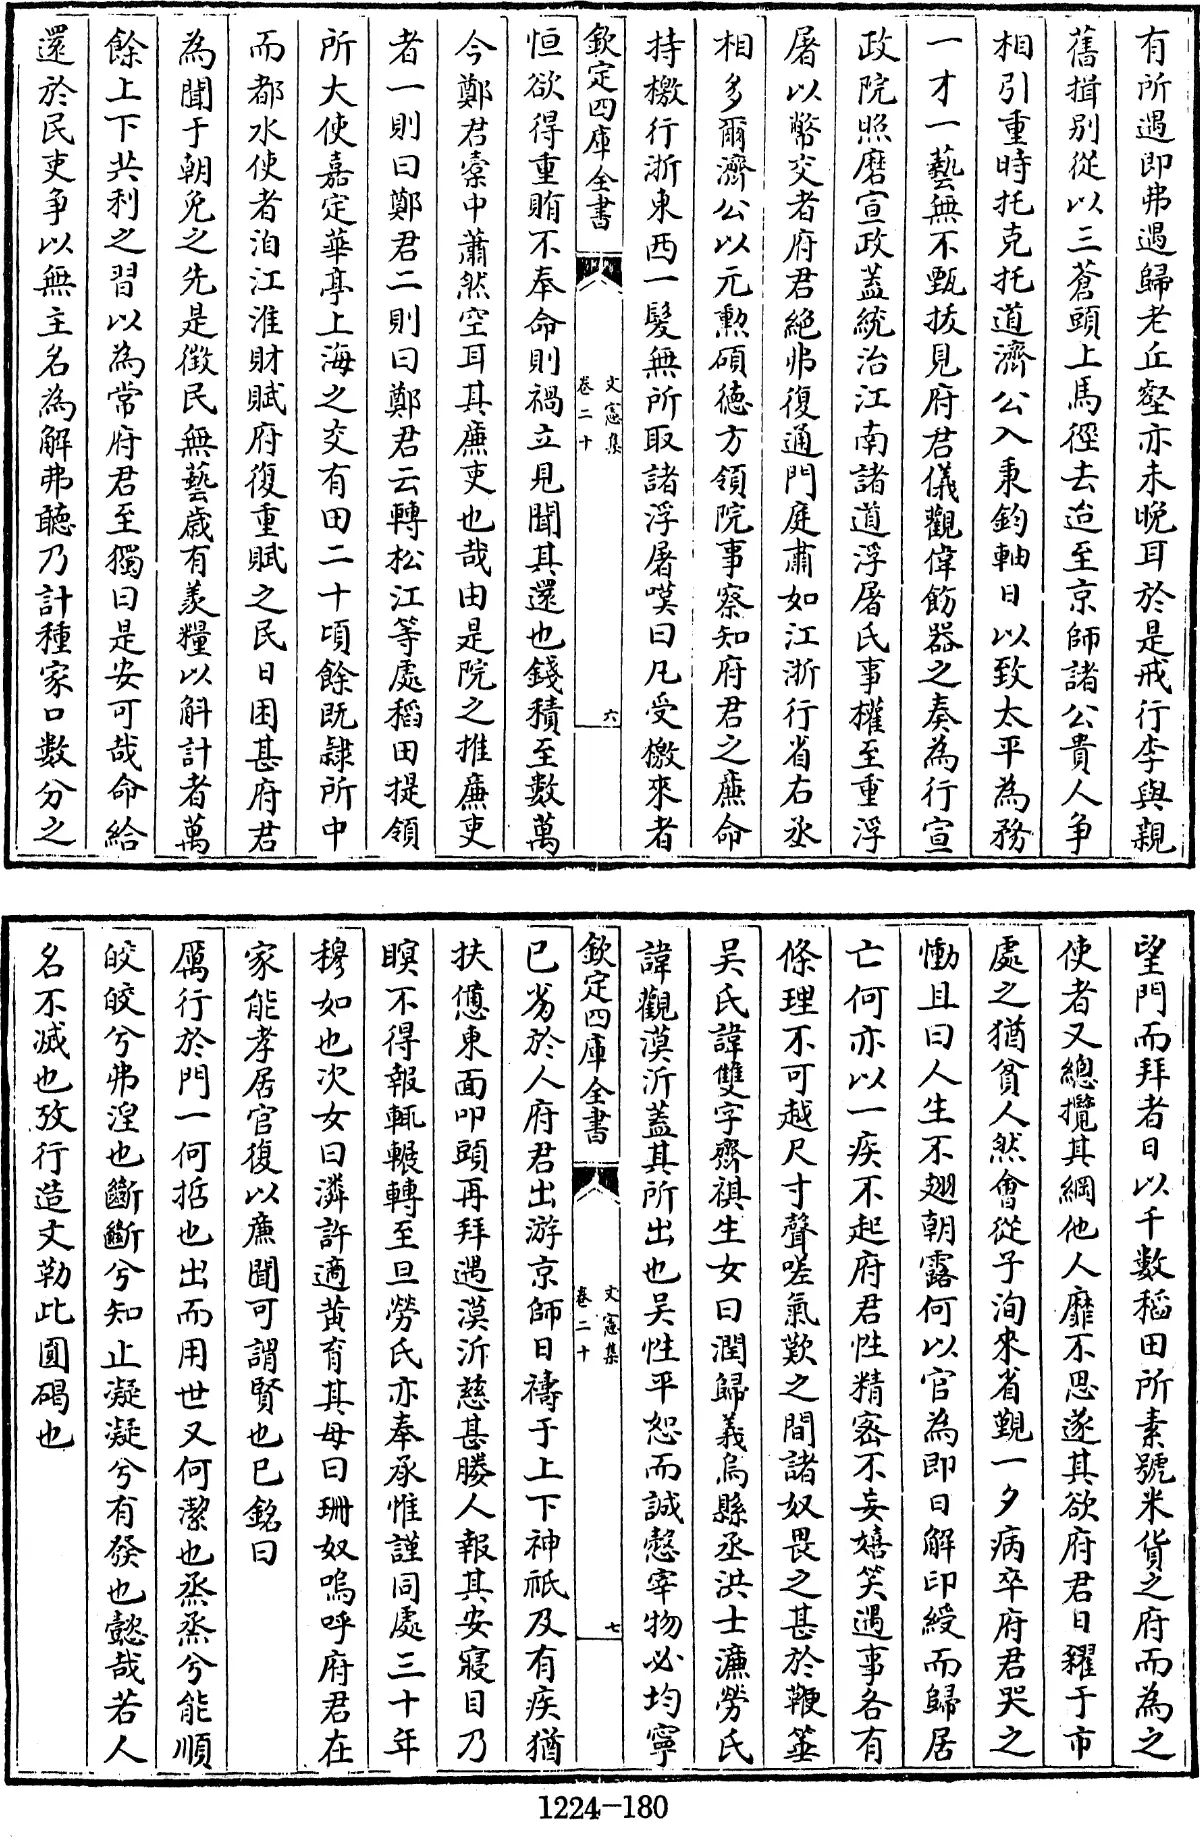 有所遇即弗遇歸老丘壑亦未晚耳於是戒行李與親
舊揖别從以三蒼頭上馬徑去迨至京師諸公貴人争
相引重時托克托道濟公入秉鈞軸日以致太平為務
一才一藝無不甄拔見府君儀觀偉飭器之奏為行宣
政院照磨宣政蓋統治江南諸道浮屠氏事權至重浮
屠以幣交者府君絶弗復通門庭肅如江浙行省右丞
相多爾濟公以元勲碩徳方領院事察知府君之亷命
持檄行浙東西一髮無所取諸浮屠嘆曰凡受檄來者
欽定四庫全書
文憲集
卷二十
六
恒欲得重賄不奉命則禍立見聞其還也錢積至數萬
今鄭君橐中蕭然空耳其亷吏也哉由是院之推亷吏
者一則曰鄭君二則曰鄭君云轉松江等處稻田提領
所大使嘉定華亭上海之交有田二十頃餘既隷所中
而都水使者洎江淮財賦府復重賦之民日困甚府君
為聞于朝免之先是徴民無藝歳有羨糧以斛計者萬
餘上下共利之習以為常府君至獨曰是安可哉命給
還於民吏争以無主名為解弗聽乃計種家口數分之
望門而拜者日以千數稻田所素號米貨之府而為之
使者又總攬其綱他人靡不思遂其欲府君日糴于市
處之猶貧人然會從子洵來省覲一夕病卒府君哭之
慟且曰人生不翅朝露何以官為即日解印綬而歸居
亡何亦以一疾不起府君性精宻不妄嬉笑遇事各有
條理不可越尺寸聲嗟氣歎之間諸奴畏之甚於鞭箠
吴氏諱雙字齊祺生女曰潤歸義烏縣丞洪士濂勞氏
諱觀漠沂蓋其所出也吴性平恕而誠慤宰物必均寧
欽定四庫全書
文憲集
卷二十
七
已劣於人府君出游京師日禱于上下神祇及有疾猶
扶憊東面叩頭再拜遇漠沂慈甚勝人報其安寢目乃
瞑不得報輒輾轉至旦勞氏亦奉承惟謹同處三十年
穆如也次女曰潾許適黄育其母曰珊奴嗚呼府君在
家能孝居官復以亷聞可謂賢也巳銘曰
厲行於門一何括也出而用世又何潔也烝烝兮能順
皎皎兮弗湼也斷斷兮知止凝凝兮有發也懿哉若人
名不滅也攷行造文勒此圓碣也
1224-180